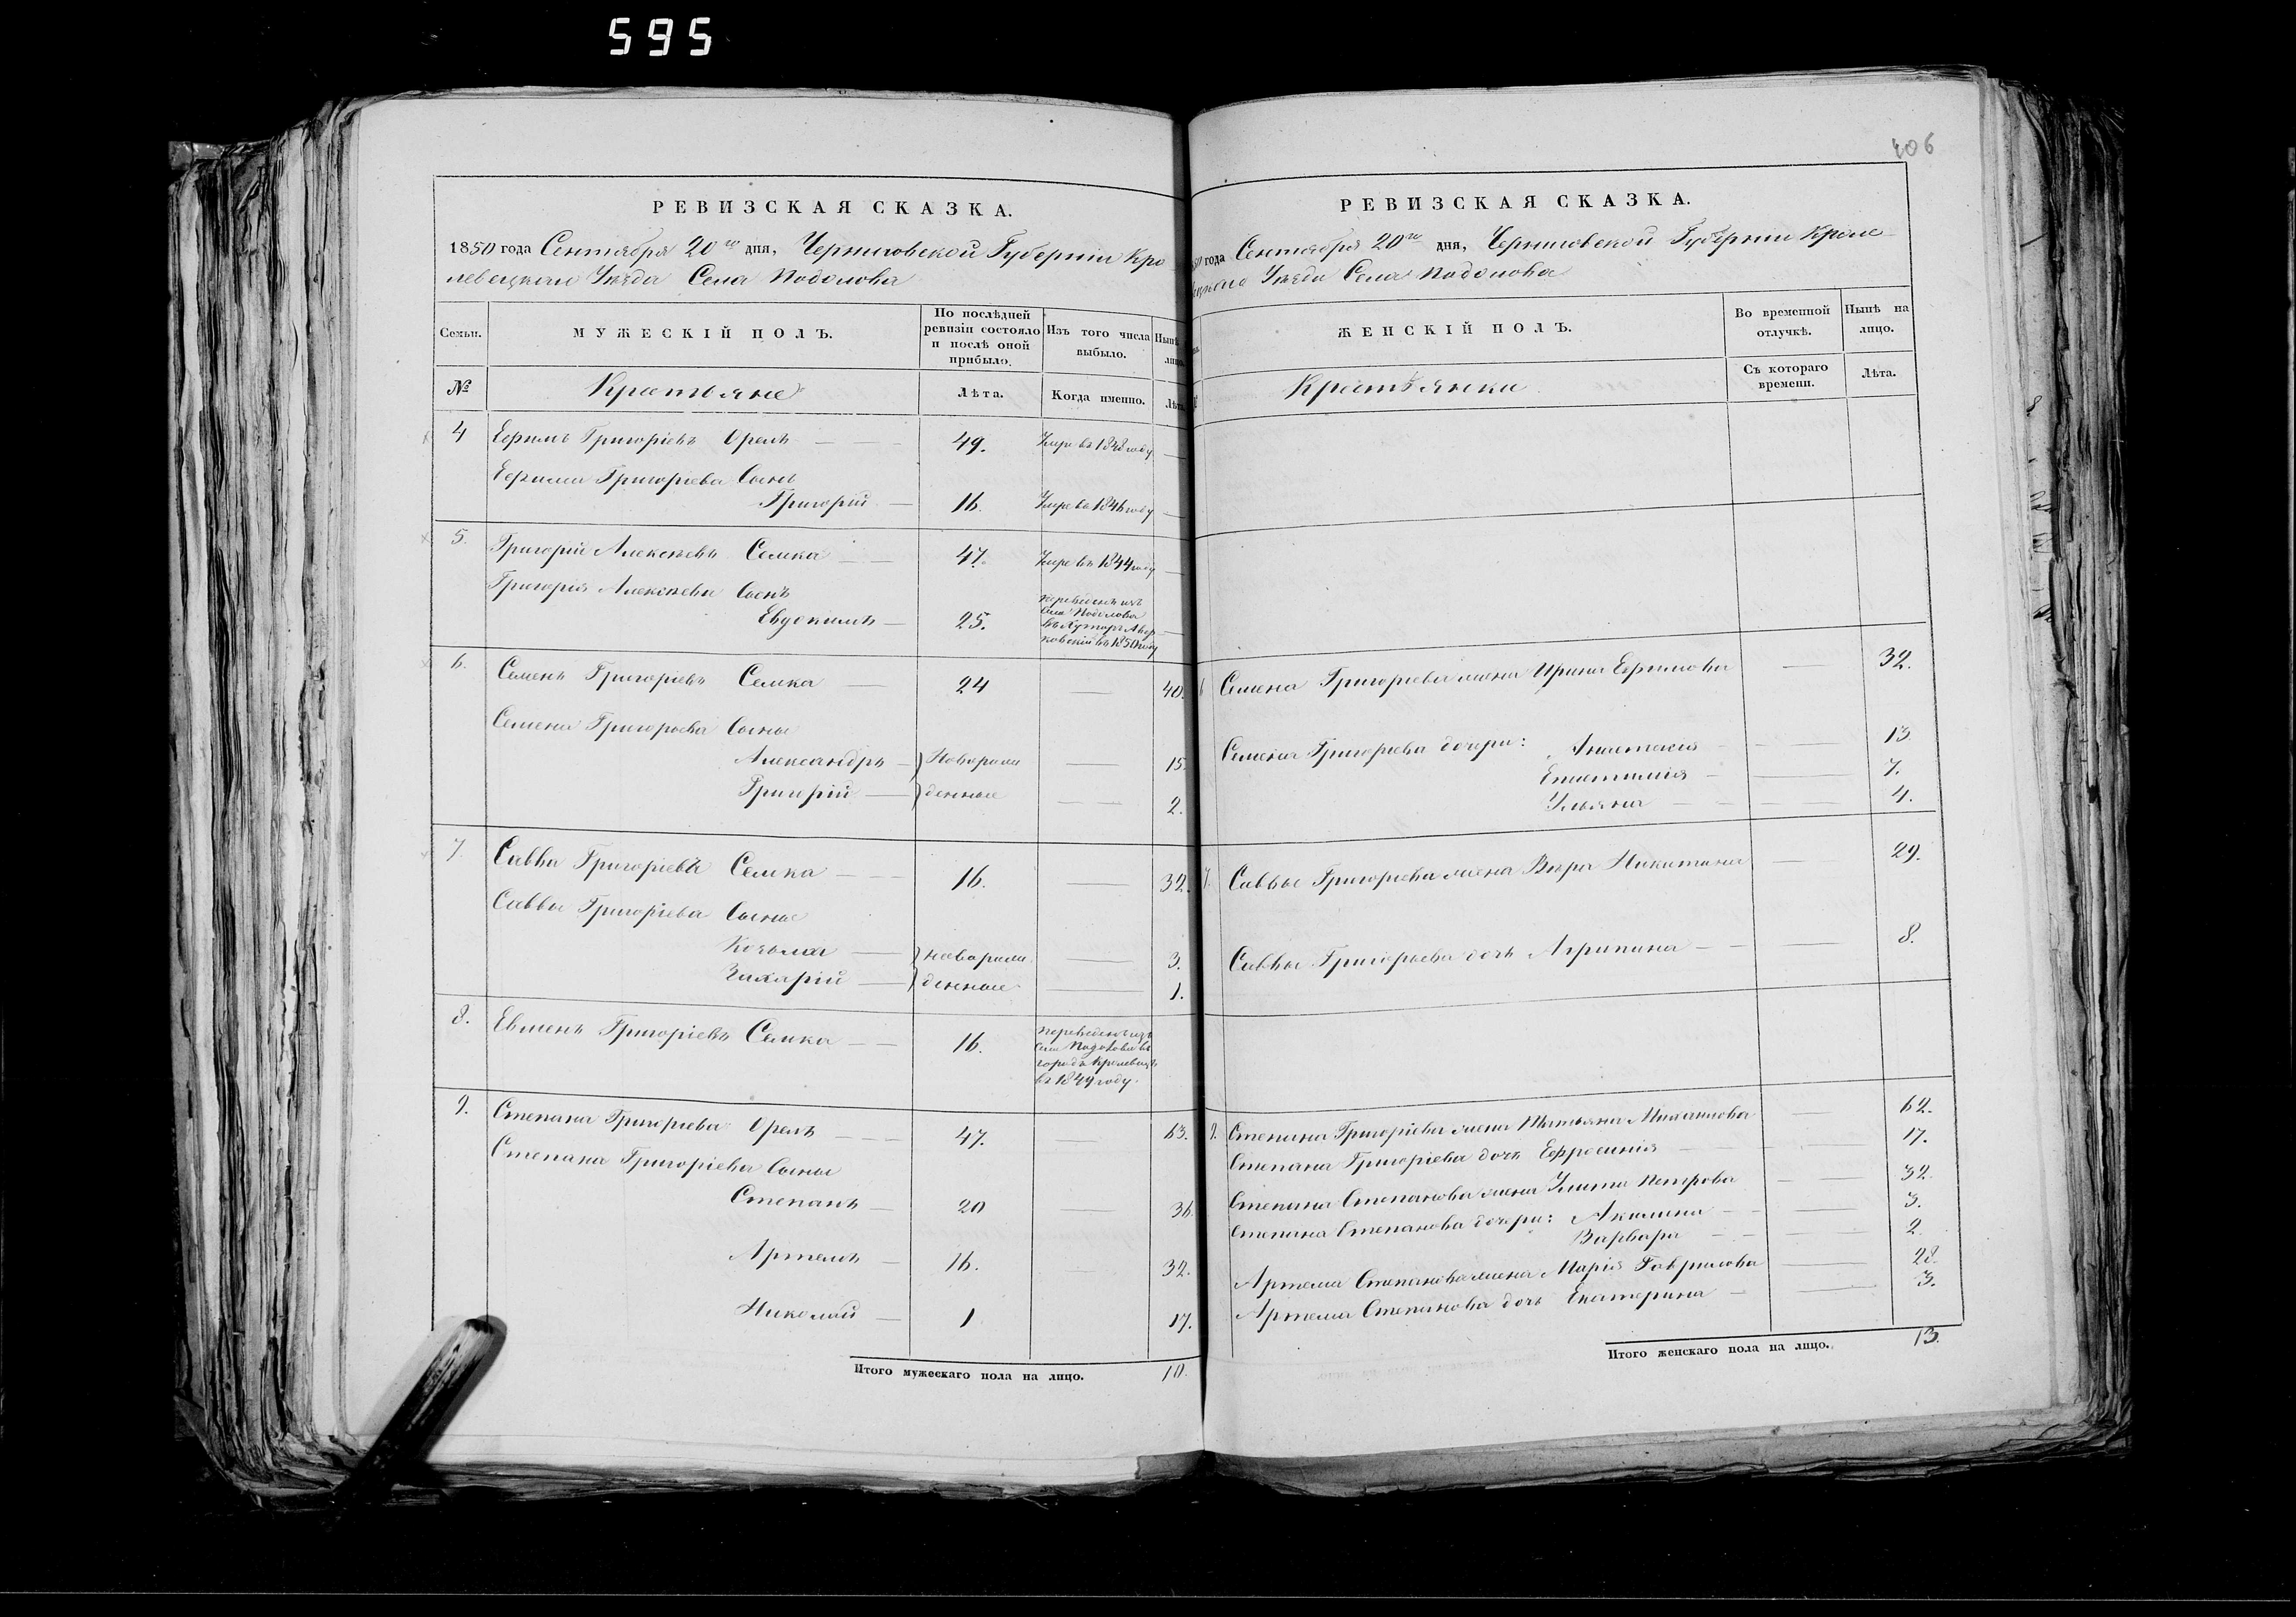 595
406
РЕВИЗСКАЯ СКАЗКА.
1850 года Сентября 20го дня, Черниговской Губерніи Кро
левецкаго Уѣзда Села Подолова
Семьи.
МУЖЕСКІЙ ПОЛЪ.
По послѣдней ревизіи состояло и послѣ оной прибыло.
Изъ того числа выбыло.
Нынѣ
лицо.
№
Крестьяне
Лѣта.
Когда именно.
Лѣта
4 Ефимъ Григорьевъ Орелъ — 49. Умре въ 1848 году —
Ефима Григоріева Сынъ
Григорій — 16. Умре въ 1846 году —
5. Григорій Алексѣевъ Семка — 47. Умре въ 1844 году —
Григорія Алексѣева Сынъ
Евдокимъ — 25. Переведенъ изъ
Села Подолова
въ Хуторъ
въ 1850 году —
6. Семенъ Григоріевъ Семка — 24 — 40.
Семена Григорьева Сыны
Александръ — Новорож — 15.
Григорій — денные — 2.
7. Савва Григоріевъ Семка — 16. — 32.
Саввы Григоріева Сыны
Козьма — новорож — 3.
Захарій — денные — 1.
8. Евменъ Григоріевъ Семка — 16. переведенъ изъ
Села Подолова въ
городъ Кролевецъ
въ 1849 году.
9. Степана Григоріева Орелъ — 47. — 63.
Степана Григоріева Сыны
Степанъ — 20 — 36
Артемъ — 16. — 32.
Николай — 1 17.
Итого мужескаго пола на лицо. 10.
РЕВИЗСКАЯ СКАЗКА.
50 года Сентября 20го дня, Черниговской Губерніи Кроле
вецкаго Уѣзда Села Подолова
ЖЕНСКІЙ ПОЛЪ.
Во временной отлучкѣ.
Нынѣ на лицо.
Крестьянки
Съ котораго времени.
Лѣта.
6 Семена Григорьева жена Ирина Ефимова — 32.
Семена Григорьева дочери: Анастасія — 13
Епистимія — 7.
Ульяна — 4.
7. Саввы Григорьева жена Вѣра Никитина — 29.
Саввы Григорьева дочь Агрипина — 8.
9. Степана Григоріева жена Татьяна Михайлова — 62.
Степана Григоріева дочь Ефросинія — 17.
Степана Степанова жена Улита Петрова — 32.
Степана Степанова дочери: Акилина — 3.
Варвара — 2.
Артема Степанова жена Марія Гаврилова — 28.
Артема Степанова дочь Екатерина — 3.
Итого женскаго пола на лицо. 13.